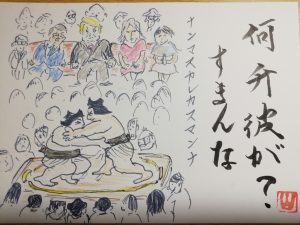 何升彼が?
すまんな
ナンマスカレカスマンナ